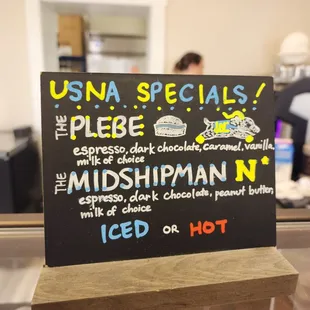 USNA SPECIALS!
THE PLEBE
espresso, dark chocolate, caramel, vanilla
milk of choice
THE MIDSHIPMAN N*
espresso, dark chocolate, peanut butter,
milk of choice
ICED OR HOT